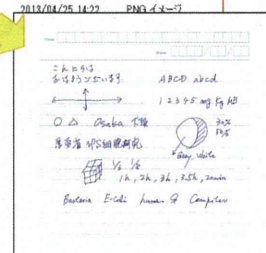 2013/04/25 14:22 PNG イメージ
こんにちは
おはようございます ABCD abcd
1 2 3 4 5 mg kg kB
○ △ Osaka 大阪
30%
50%
iPS細胞研究
Gray, white
1/2 1/3
1h, 2h, 3h, 3.5h, 20min
Bacteria E-coli human Computer